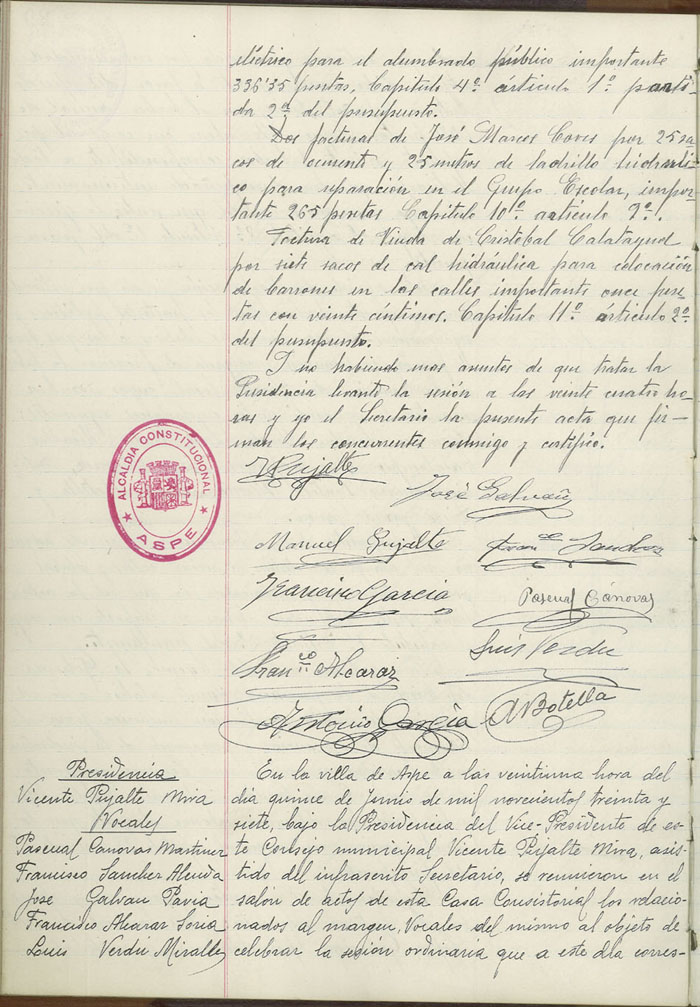 eléctrico para el alumbrado público importante
336'35 pesetas, Capítulo 4º artículo 1º parti-
da 2ª del presupuesto.
Dos facturas de José Marcos Coves por 25 sa-
cos de cemento y 25 metros de ladrillo hidrauli-
co para reparación en el Grupo Escolar, impor-
tante 265 pesetas Capítulo 10º artículo 2º.
Factura de Viuda de Cristobal Calatayud
por siete sacos de cal hidráulica para colocación
de barrones en las calles importante once pese-
tas con veinte céntimos. Capítulo 11º artículo 2º
del presupuesto.
Y no habiendo mas asuntos de que tratar la
Presidencia levanto la sesión a las veinte cuatro ho-
ras y yo el Secretario la presente acta que fir-
man los concurrentes conmigo y certifico.
ALCALDIA CONSTITUCIONAL
ASPE
VPujalte
José Galvañ
Manuel Pujalte
Franco Sanchez
Francisco Garcia
Pascual Cánovas
Luis Verdu
Franco Alcaraz
Antonio Garcia
A Botella
Presidencia
Vicente Pujalte Mira
Vocales
Pascual Canovas Martinez
Francisco Sanchez
Jose Galvan Pavia
Francisco Alcaraz Soria
Luis Verdú Miralles
En la villa de Aspe a las veintiuna hora del
día quince de Junio de mil novecientos treinta y
siete, bajo la Presidencia del Vice-Presidente de es-
te Consejo municipal Vicente Pujalte Mira, asis-
tido del infrascrito Secretario, se reunieron en el
salón de actos de esta Casa Consistorial los relacio-
nados al margen, Vocales del mismo al objeto de
celebrar la sesión ordinaria que a este día corres-